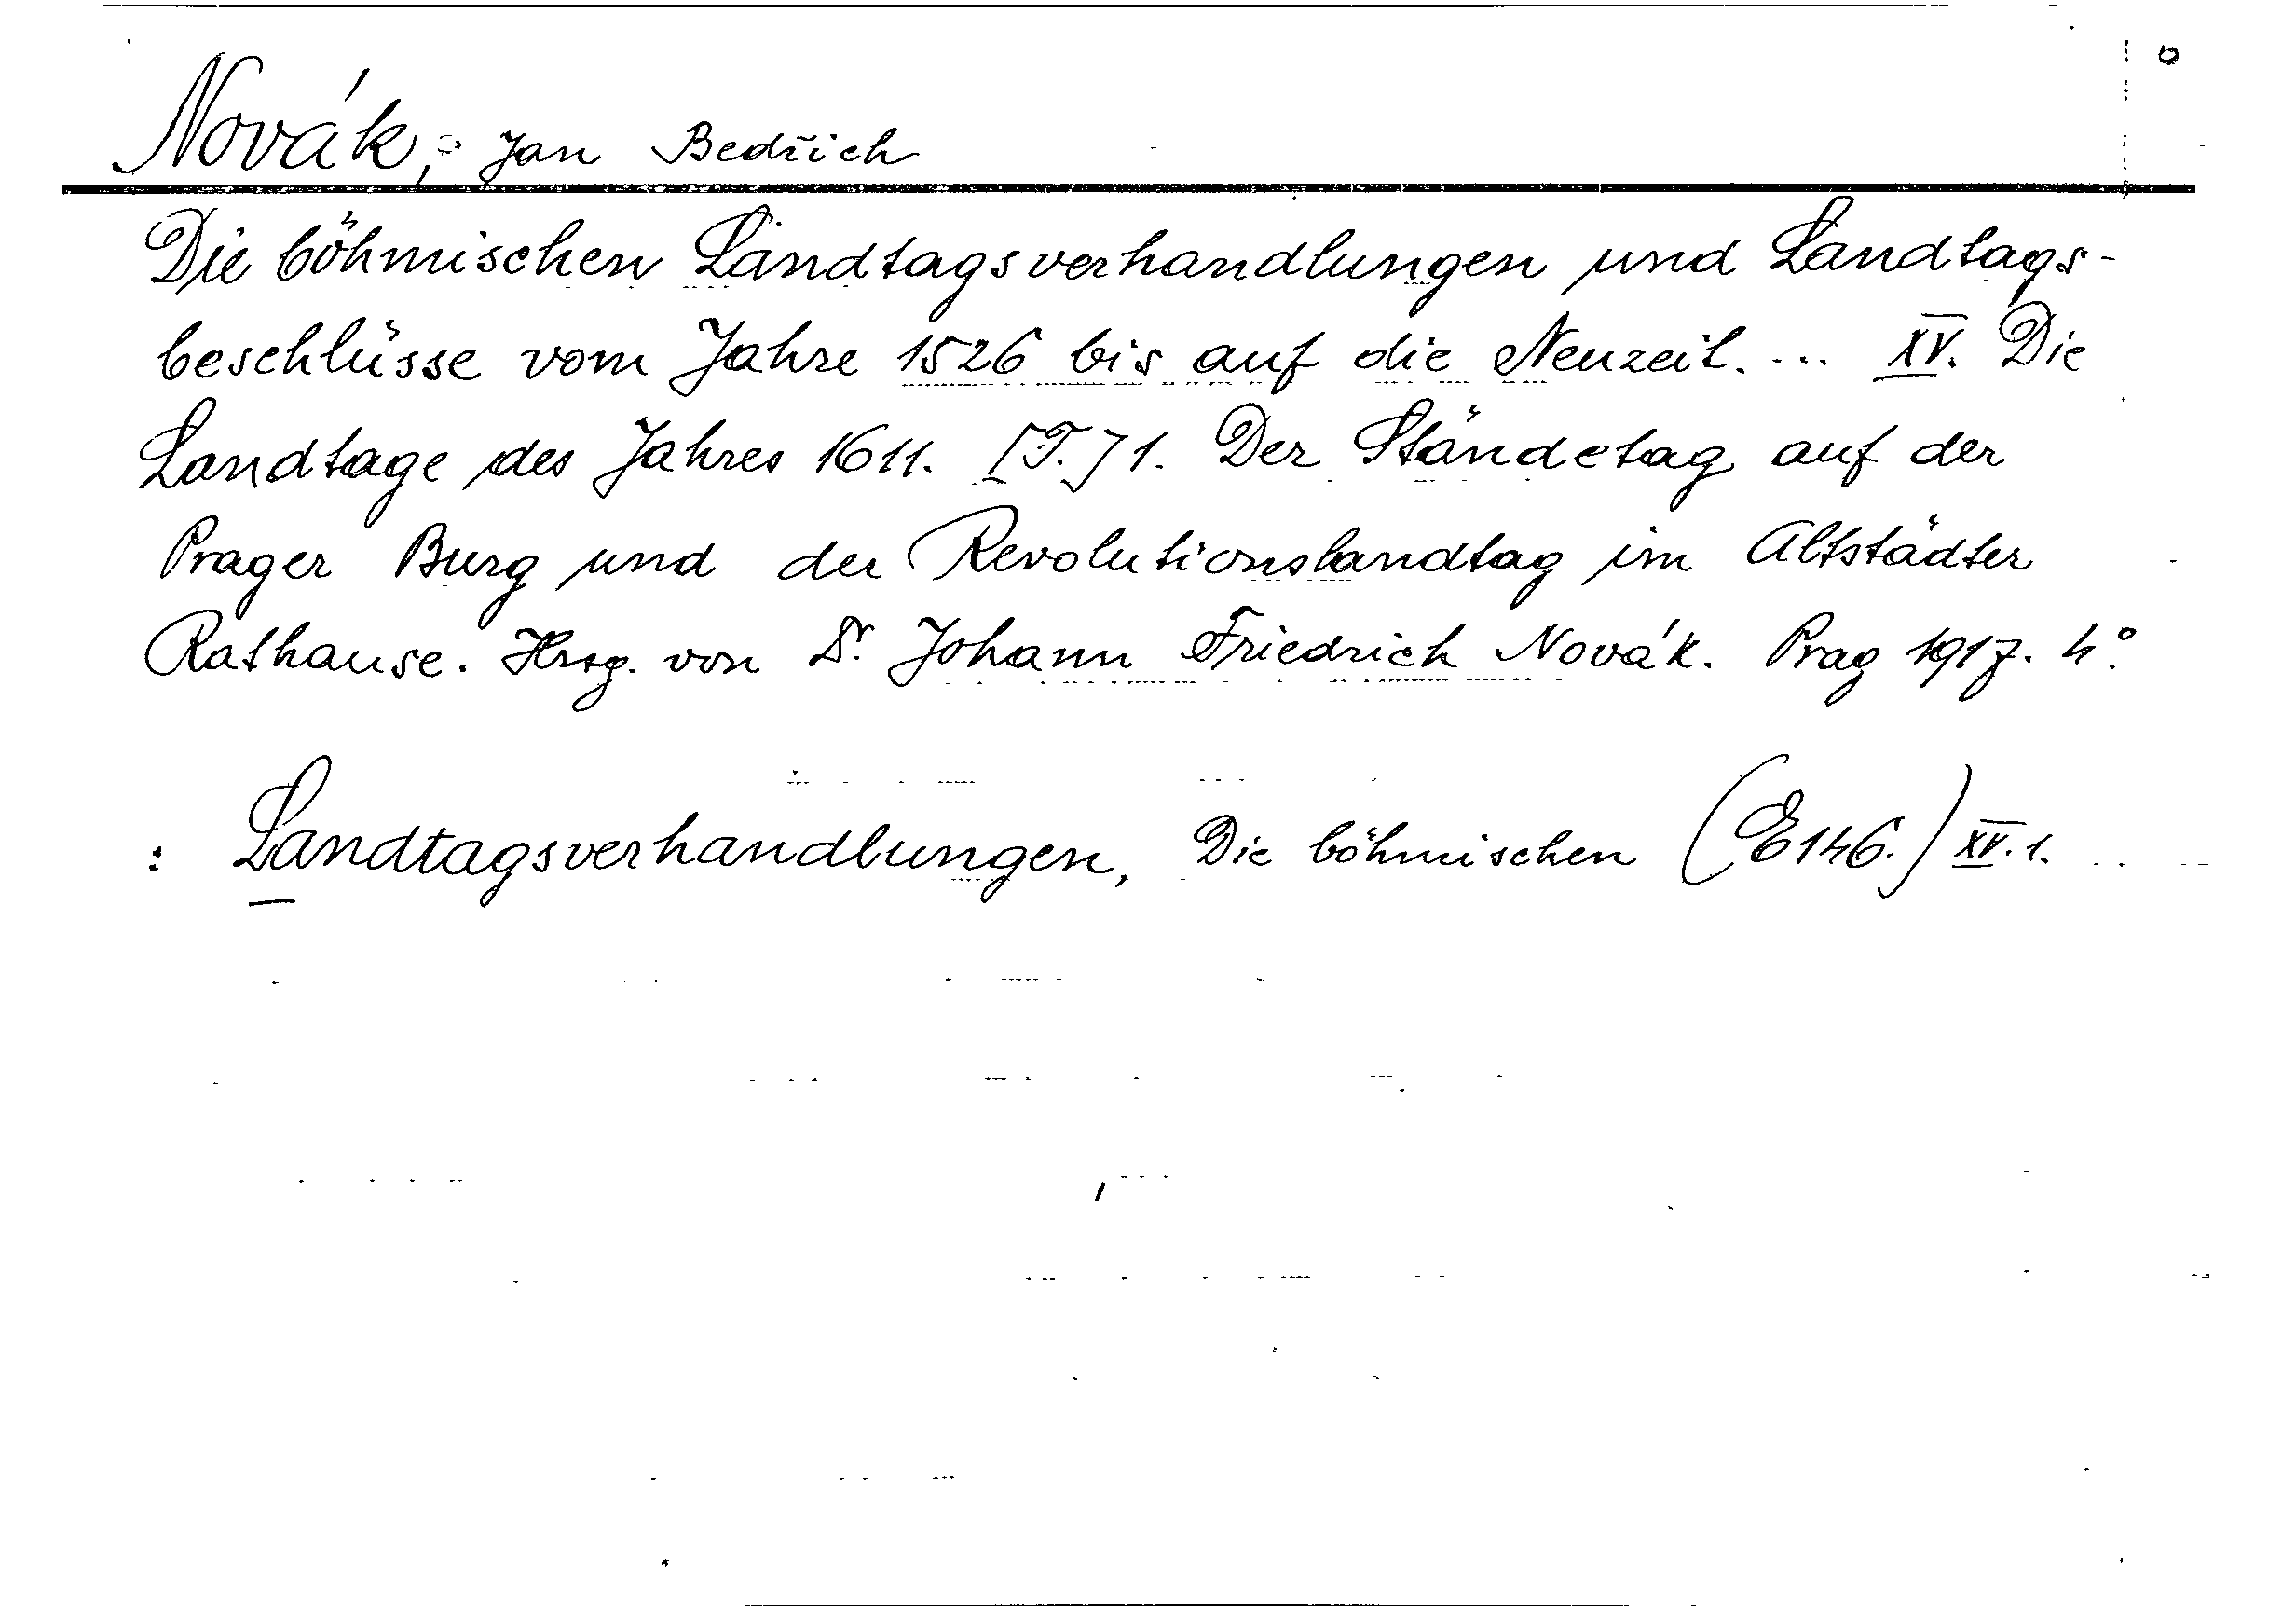 Novák, Jan Bedřich
Die böhmischen Landtagsverhandlungen und Landtags-
beschlüsse vom Jahre 1526 bis auf die Neuzeit. ... XV. Die
Landtage des Jahres 1611. [T.] 1. Der Ständetag auf der
Prager Burg und der Revolutionslandtag im Altstädter
Rathause. Hrsg. von Dr. Johann Friedrich Novák. Prag 1917. 4°.
: Landtagsverhandlungen, Die böhmischen (E146.) XV. 1.